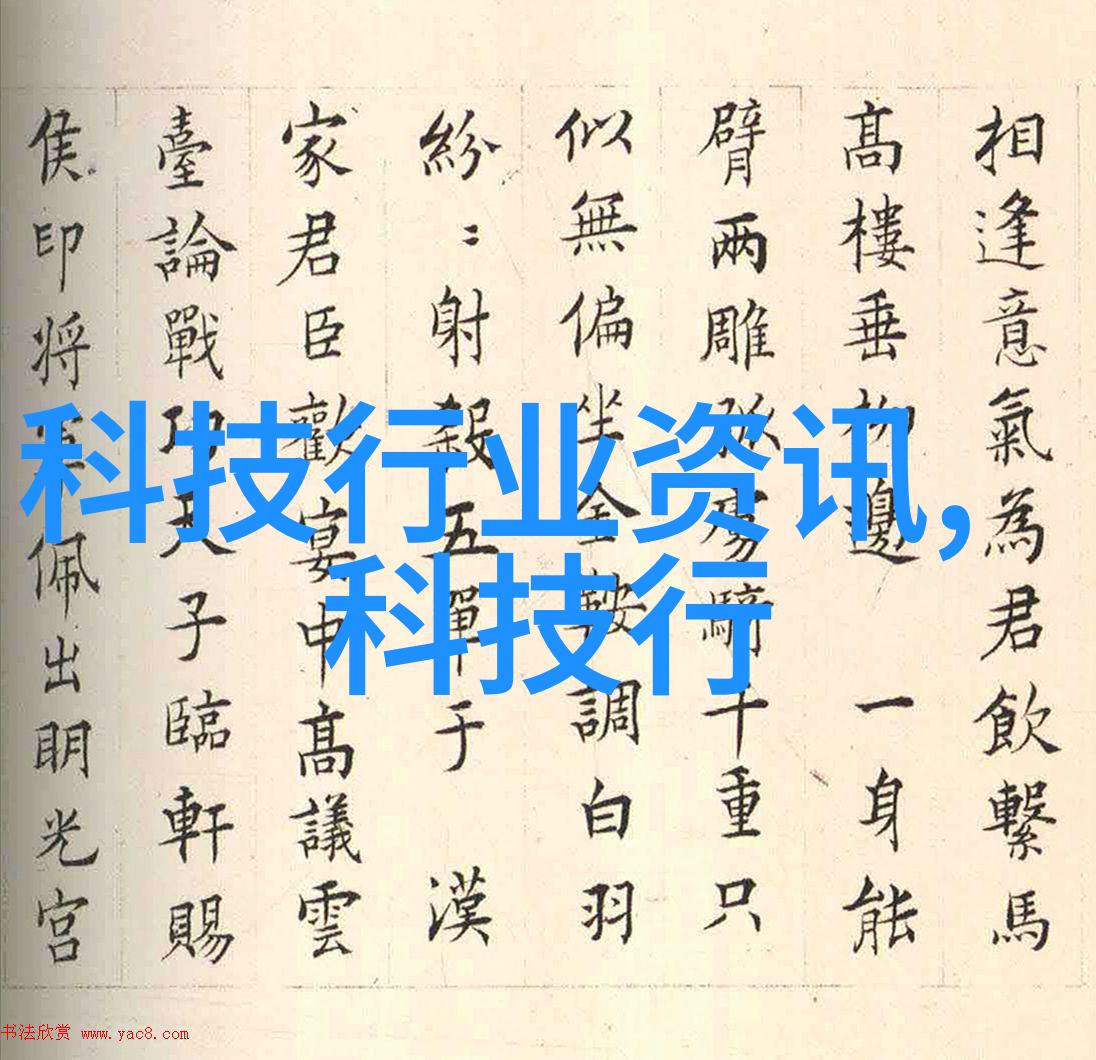 相逢意氣為君飲繫馬
髙樓垂柳邊 一身能
臂兩雕弧虜騎千重只
似無偏坐金鞍調白羽
紛〻射殺五單于 漢
家君臣歡宴申髙議雲
臺論戰功天子臨軒賜
侯印将軍佩出明光宮
科技行业资讯,
科技行
书法欣赏 www.yac8.com